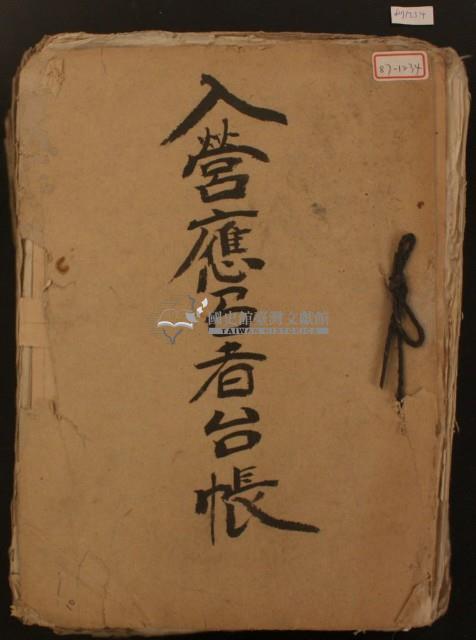 入營應召者台帳
87-1234
國史館臺灣文獻館
TAIWAN HISTORICA